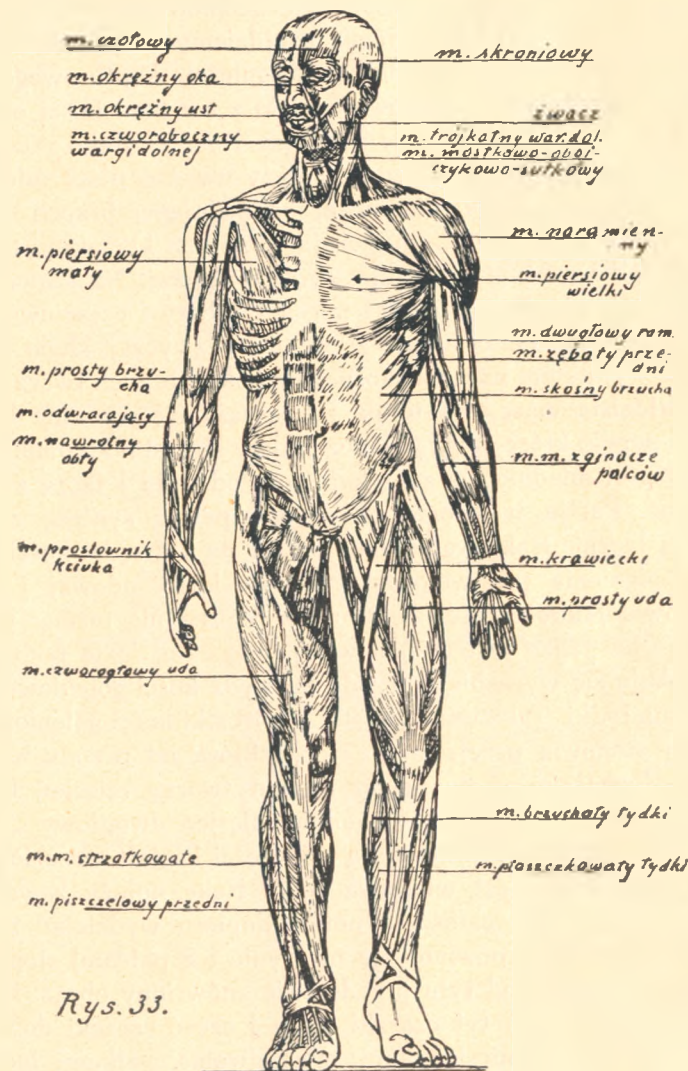 m. czołowy
m. okrężny oka
m. okrężny ust
m. czworoboczny
wargi dolnej
m. piersiowy
mały
m. prosty brzu-
cha
m. odwracający
m. nawrotny
obły
m. prostownik
kciuka
m. czworogłowy uda
m.m. strzałkowate
m. piszczelowy przedni
m. skroniowy
żwacz
m. trójkątny war. dol.
m. mostkowo-oboj-
czykowo-sutkowy
m. naramien-
ny
m. piersiowy
wielki
m. dwugłowy ram.
m. zębaty prze-
dni
m. skośny brzucha
m.m. zginacze
palców
m. krawiecki
m. prosty uda
m. brzuchaty łydki
m. płaszczkowaty łydki
Rys. 33.